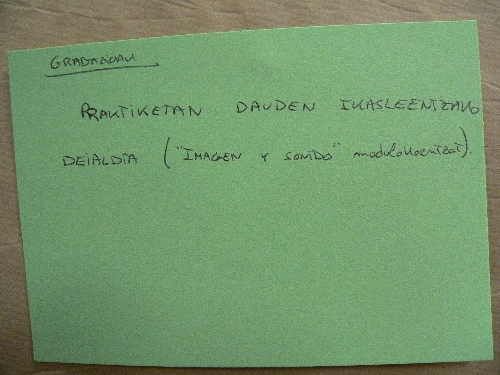 GRABAZIOAK
PRAKTIKETAN DAUDEN IKASLEENTZAKO
DEIALDIA ("IMAGEN Y SONIDO" modulokoentzat).